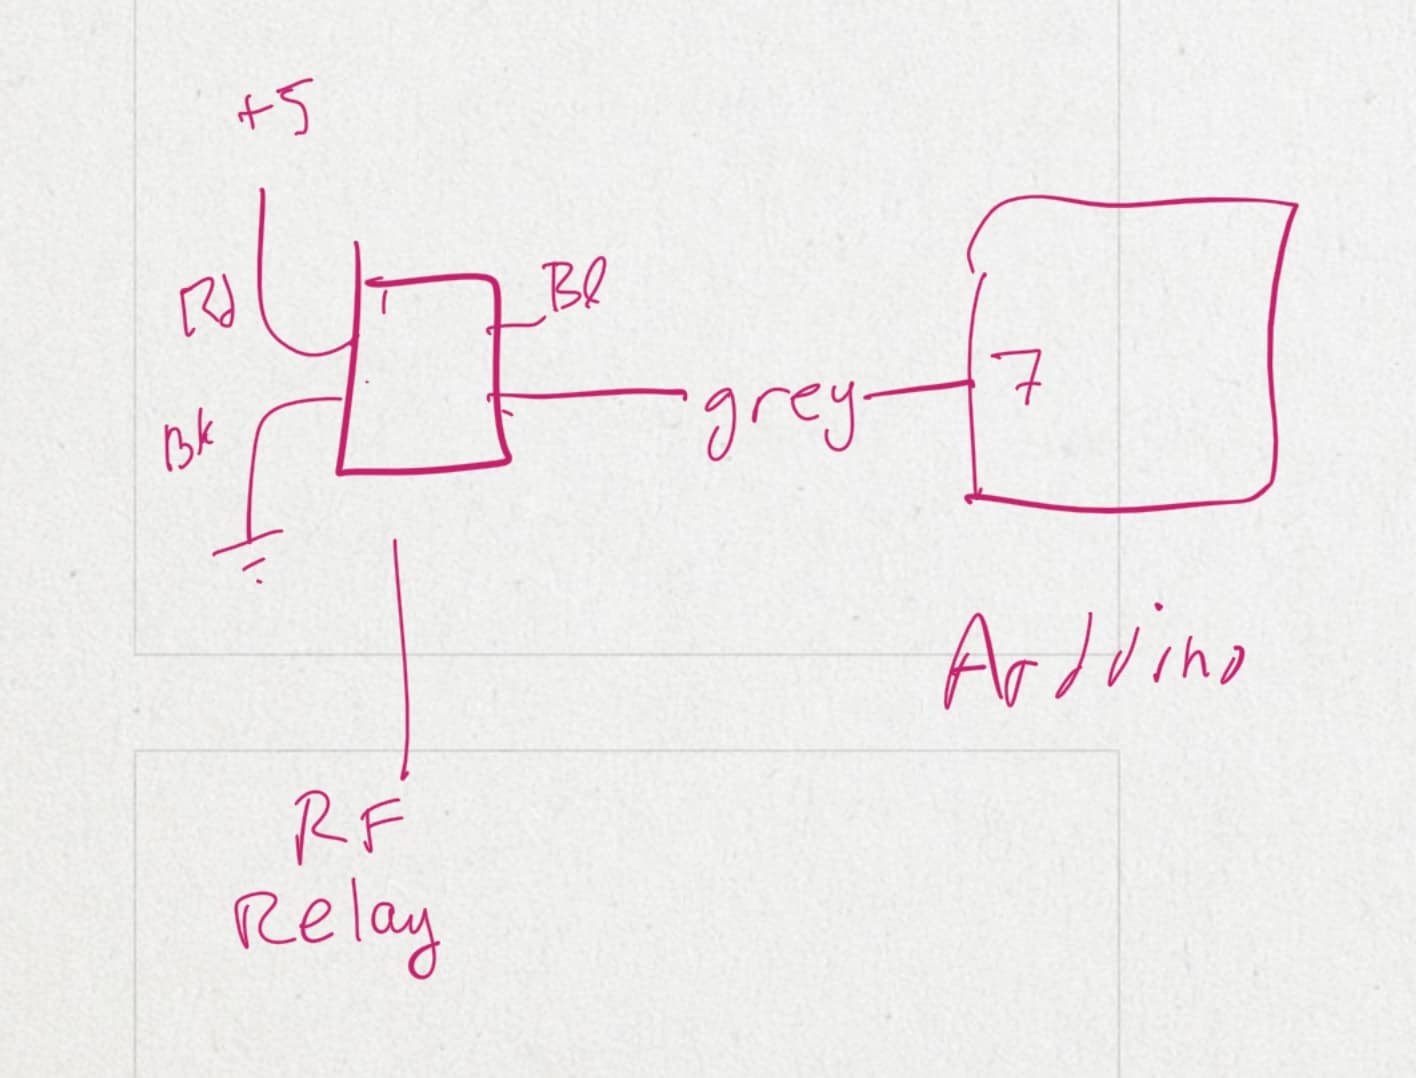 +5
Rd
Bl
Bk
grey
7
Arduino
RF
Relay